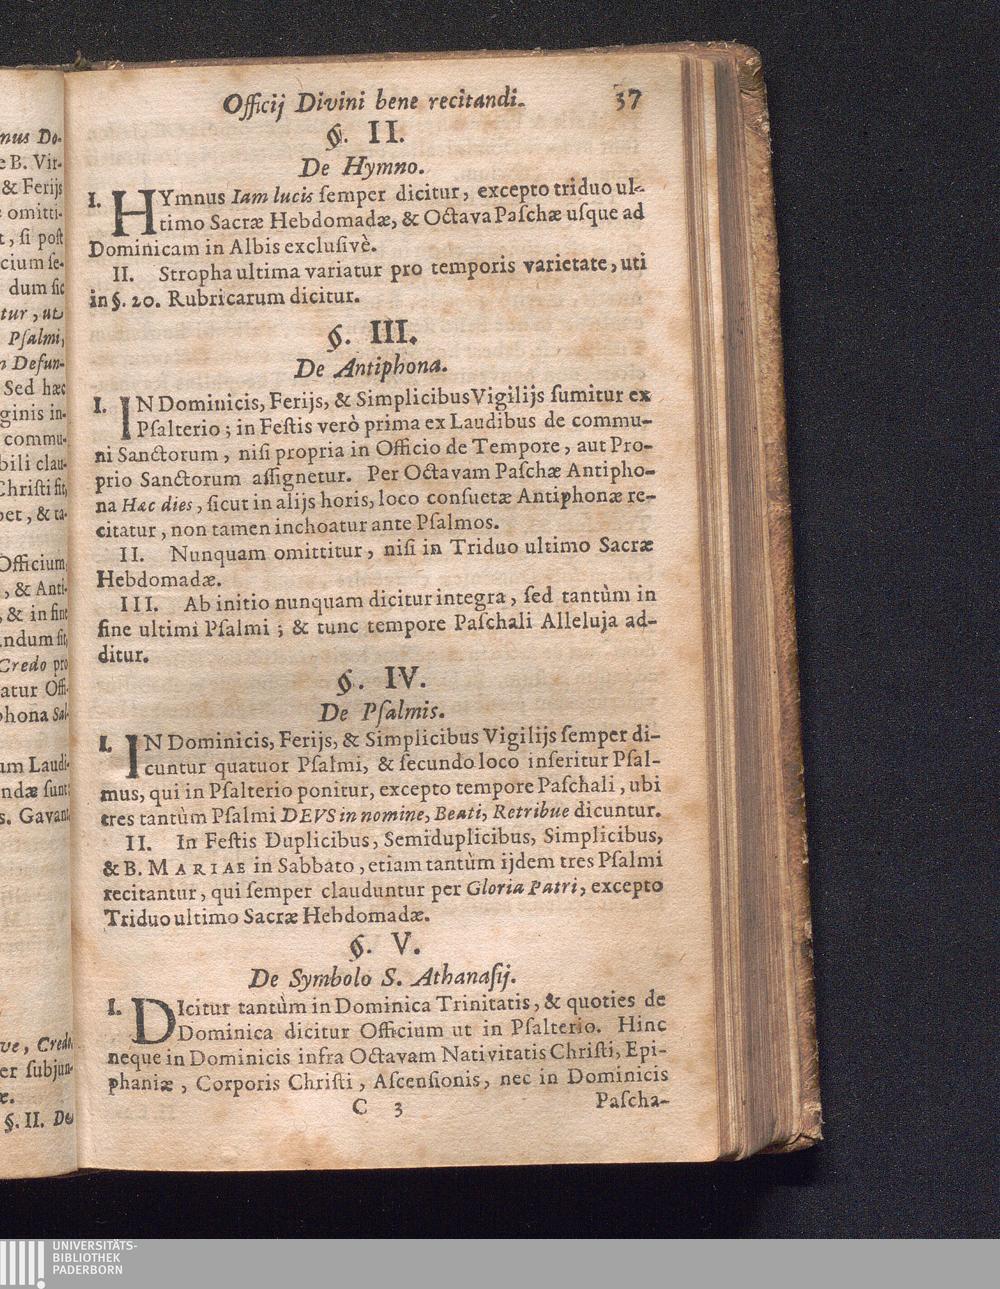 Officij Divini bene recitandi. 37
§. II.
De Hymno.
I. HYmnus Iam lucis ſemper dicitur, excepto triduo ul-
timo Sacræ Hebdomadæ, & Octava Paſchæ uſque ad
Dominicam in Albis excluſivè.
II. Stropha ultima variatur pro temporis varietate, uti
in §. 20. Rubricarum dicitur.
§. III.
De Antiphona.
I. IN Dominicis, Ferijs, & Simplicibus Vigilijs ſumitur ex
Pſalterio; in Feſtis verò prima ex Laudibus de commu-
ni Sanctorum, niſi propria in Officio de Tempore, aut Pro-
prio Sanctorum aſſignetur. Per Octavam Paſchæ Antipho-
na Hæc dies, ſicut in alijs horis, loco conſuetæ Antiphonæ re-
citatur, non tamen inchoatur ante Pſalmos.
II. Nunquam omittitur, niſi in Triduo ultimo Sacræ
Hebdomadæ.
III. Ab initio nunquam dicitur integra, ſed tantùm in
fine ultimi Pſalmi; & tunc tempore Paſchali Alleluja ad-
ditur.
§. IV.
De Pſalmis.
I. IN Dominicis, Ferijs, & Simplicibus Vigilijs ſemper di-
cuntur quatuor Pſalmi, & ſecundo loco inſeritur Pſal-
mus, qui in Pſalterio ponitur, excepto tempore Paſchali, ubi
tres tantùm Pſalmi DEVS in nomine, Beati, Retribue dicuntur.
II. In Feſtis Duplicibus, Semiduplicibus, Simplicibus,
& B. MARIAE in Sabbato, etiam tantùm ijdem tres Pſalmi
recitantur, qui ſemper clauduntur per Gloria Patri, excepto
Triduo ultimo Sacræ Hebdomadæ.
§. V.
De Symbolo S. Athanaſij.
I. DIcitur tantùm in Dominica Trinitatis, & quoties de
Dominica dicitur Officium ut in Pſalterio. Hinc
neque in Dominicis infra Octavam Nativitatis Chriſti, Epi-
phaniæ, Corporis Chriſti, Aſcenſionis, nec in Dominicis
C 3 Paſcha-
UNIVERSITÄTS-
BIBLIOTHEK
PADERBORN